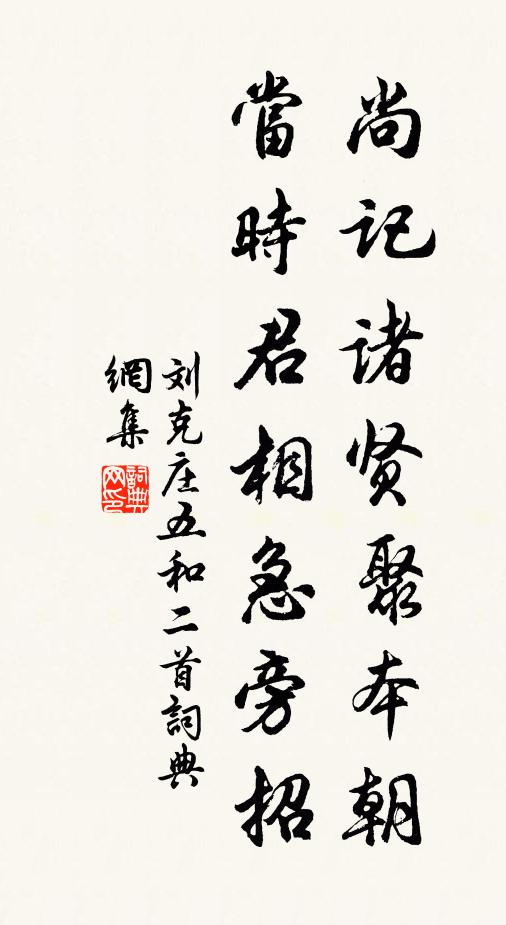 尚记诸贤聚本朝
當時君相急旁招
刘克庄五和二首詞典
網集
詞典
网印